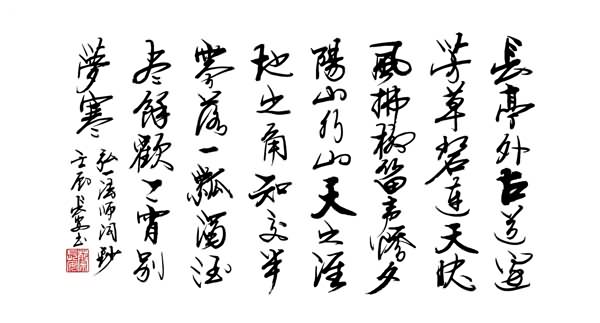 長亭外古道邊
芳草碧連天晚
風拂柳笛声殘夕
陽山外山天之涯
地之角知交半
零落一瓢濁酒
尽餘歡今宵別
夢寒
弘一法师词
书